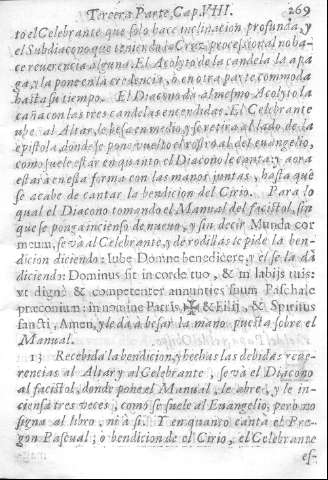 Tercera Parte, Cap. VIII. 269
to el Celebrante que solo hace inclinacion profunda, y
el Subdiacono que teniendo la Cruz procesional no ha-
ce reverencia alguna. El Acolyto de la candela la apa
ga, y la pone en la credencia, ò en otra parte commoda
hasta su tiempo. El Diacono da al mesmo Acolyto la
caña con las tres candelas encendidas. El Celebrante
sube al Altar, le besa en medio, y se retira al lado de la
epistola, donde se pone vuelto el rostro al del evangelio,
como suele estàr en quanto el Diacono le canta: y aora
estarà en esta forma con las manos juntas, hasta que
se acabe de cantar la bendicion del Cirio. Para lo
qual el Diacono tomando el Manual del facistol, sin
que se ponga incienso de nuevo, y sin decir Munda cor
meum, se và al Celebrante, y de rodillas le pide la ben-
dicion diciendo: Iube Domne benedicere, y el se la dà
diciendo: Dominus sit in corde tuo, & in labijs tuis:
vt dignè & competenter annunties suum Paschale
præconium: in nomine Patris, ✠ & Filij, & Spiritus
sancti, Amen, y le dà à besar la mano puesta sobre el
Manual.
13 Recebida la bendicion, y hechas las debidas reve-
rencias al Altar y al Celebrante, se và el Diacono
al facistol, donde pone el Manual, le abre, y le in-
ciensa tres veces, como se suele al Evangelio, pero no
signa al libro, ni à si. Y en quanto canta el Pre-
gon Pascual, ò bendicion de el Cirio, el Celebrante
es-